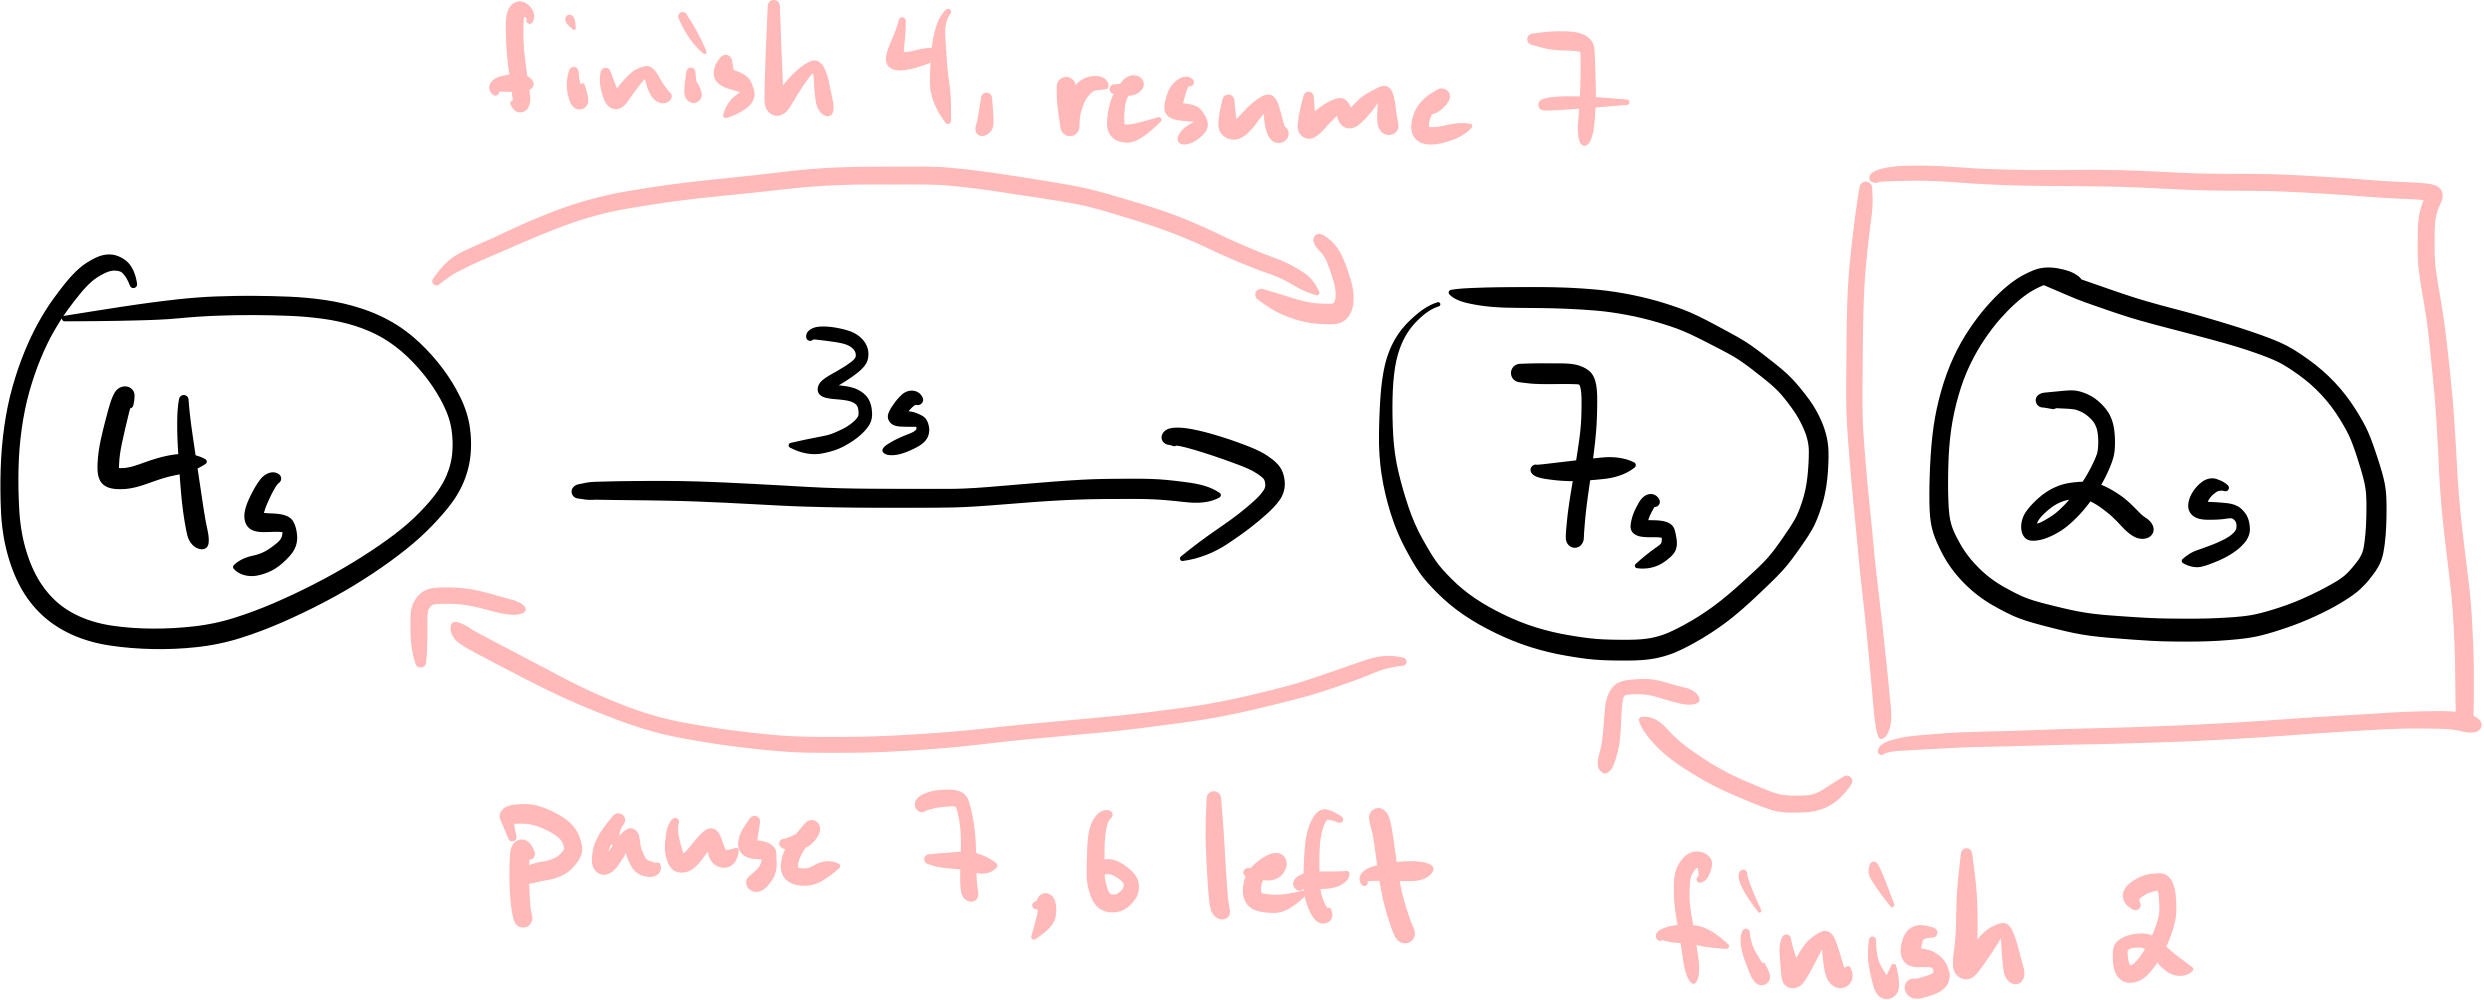 finish 4, resume 7
3s
4s
7s
2s
pause 7, 6 left
finish 2